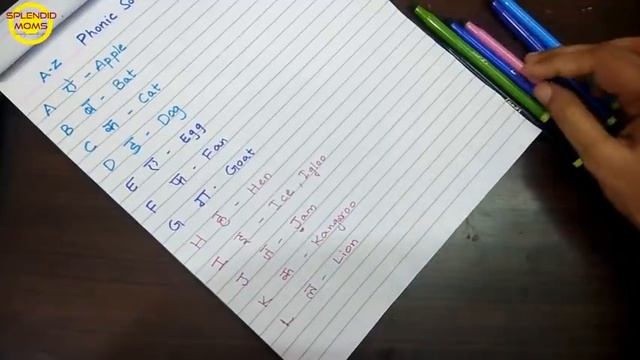 SPLENDID
MOMS
A-Z Phonic So
A ऐ - Apple
B ब - Bat
C क - Cat
D ड - Dog
E ए - Egg
F फ - Fan
G ग - Goat
H ह - Hen
I इ - Ice, Igloo
J ज - Jam
K क - Kangaroo
L ल - Lion